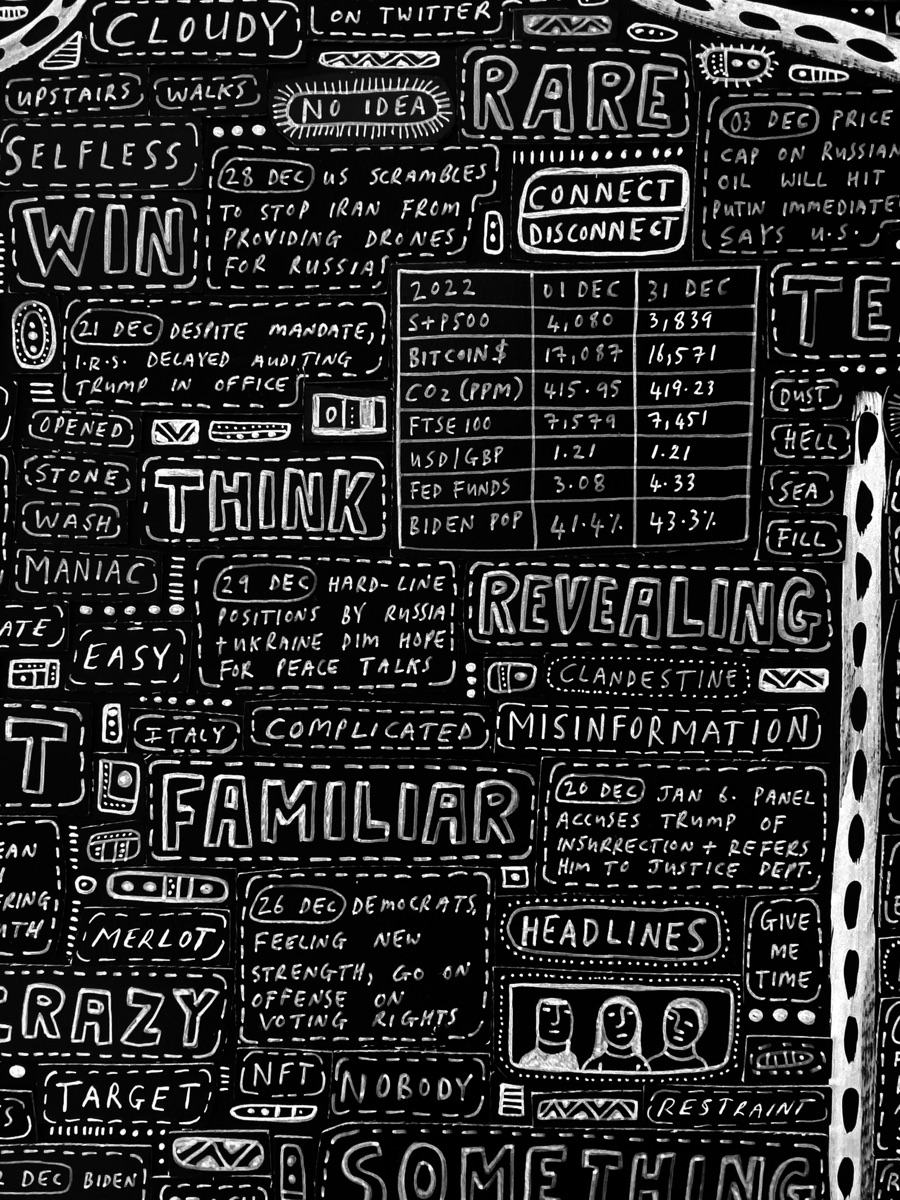 CLOUDY
ON TWITTER
UPSTAIRS
WALKS
NO IDEA
RARE
03 DEC PRICE
CAP ON RUSSIAN
OIL WILL HIT
PUTIN IMMEDIATE
SAYS U.S.
SELFLESS
WIN
28 DEC US SCRAMBLES
TO STOP IRAN FROM
PROVIDING DRONES
FOR RUSSIA
CONNECT
DISCONNECT
21 DEC DESPITE MANDATE,
I.R.S. DELAYED AUDITING
TRUMP IN OFFICE
2022 01 DEC 31 DEC
S+P500 4,080 3,839
BITCOIN $ 17,087 16,571
CO2 (PPM) 415.95 419.23
FTSE 100 7,579 7,451
USD/GBP 1.21 1.21
FED FUNDS 3.08 4.33
BIDEN POP 41.4% 43.3%
TE
DUST
HELL
SEA
FILL
OPENED
STONE
WASH
THINK
MANIAC
ATE
EASY
29 DEC HARD-LINE
POSITIONS BY RUSSIA
+ UKRAINE DIM HOPE
FOR PEACE TALKS
REVEALING
CLANDESTINE
T
ITALY
COMPLICATED
MISINFORMATION
FAMILIAR
20 DEC JAN 6. PANEL
ACCUSES TRUMP OF
INSURRECTION + REFERS
HIM TO JUSTICE DEPT.
EAN
H
ERING
WITH
MERLOT
26 DEC DEMOCRATS,
FEELING NEW
STRENGTH, GO ON
OFFENSE ON
VOTING RIGHTS
HEADLINES
GIVE
ME
TIME
CRAZY
TARGET
NFT
NOBODY
RESTRAINT
DEC BIDEN
SOMETHING